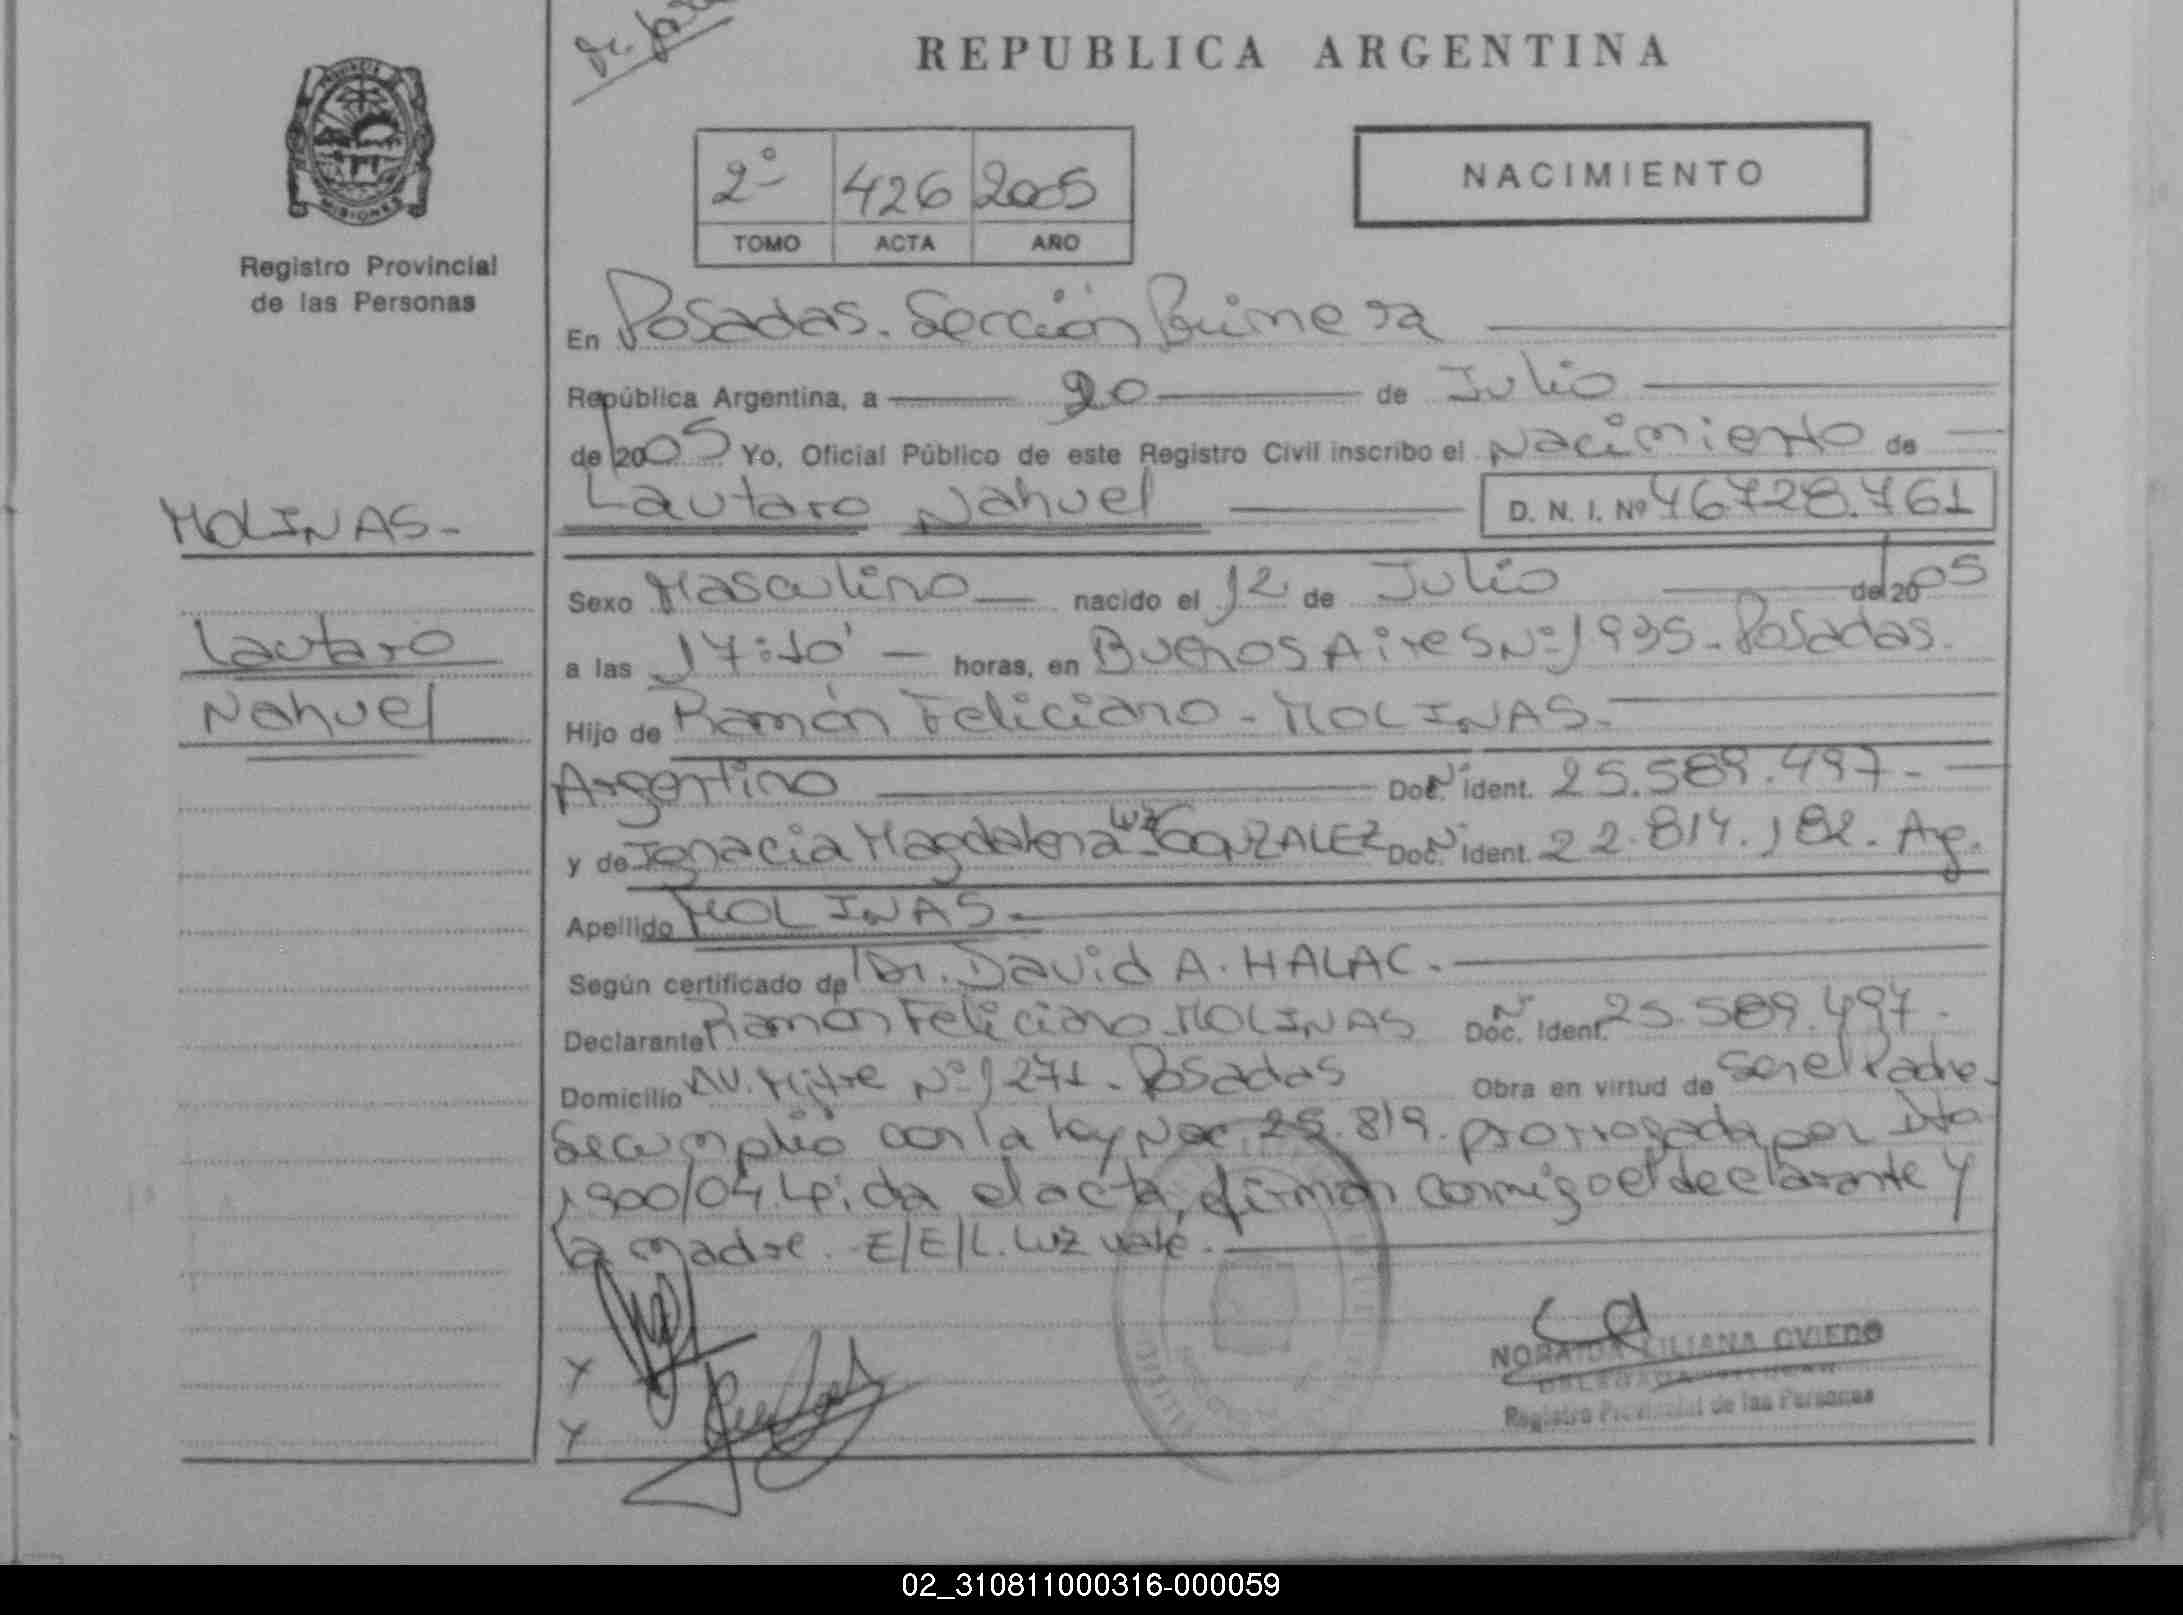 REPUBLICA ARGENTINA
MISIONES
Registro Provincial
de las Personas
2º 426 2005
TOMO ACTA AÑO
NACIMIENTO
En Posadas. Sección Primera
República Argentina, a 20 de Julio
de 2005 Yo, Oficial Público de este Registro Civil inscribo el Nacimiento de
Lautaro Nahuel D. N. I. Nº 46728.761
MOLINAS-
Lautaro
Nahuel
Sexo Masculino nacido el 12 de Julio de 2005
a las 17:10' horas, en Buenos Aires Nº 1935-Posadas.
Hijo de Ramón Feliciano - MOLINAS.
Argentino Doc. Nº ident. 25.589.497-
y de Ignacia Magdalena Luz GONZALEZ Doc. Nº ident. 22.814.182. Arg.
Apellido MOLINAS.
Según certificado de Dr. David A. HALAC.
Declarante Ramón Feliciano MOLINAS Doc. Nº Ident. 25.589.497.
Domicilio AV. Mitre Nº 1271. Posadas Obra en virtud de Ser el Padre.
Se cumplió con la Ley Nac. 25.819. prorrogada por Dto
1900/04. Leída el acta, firman conmigo el declarante y
la madre. E/E/L. Luz vale.
NORAIDA LILIANA OVIEDO
Registro Provincial de las Personas
02_310811000316-000059